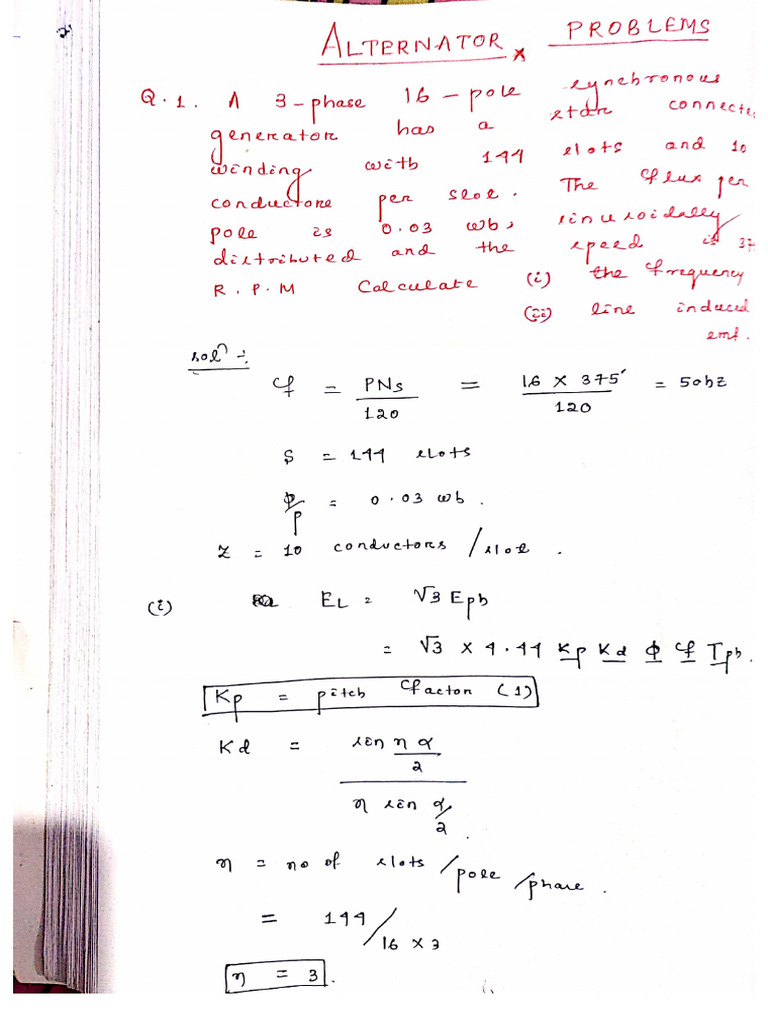 ALTERNATOR PROBLEMS
Q.1. A 3-phase 16-pole synchronous
generator has a star connecte
winding with 144 slots and 10
conductors per slot. The flux per
pole is 0.03 wb, sinusoidally
distributed and the speed is 37
R.P.M Calculate (i) the frequency
(ii) line induced
emf.
solⁿ :-
f = PNs/120 = 16 × 375/120 = 50hz
S = 144 slots
Φ/P = 0.03 wb.
Z = 10 conductors/slot.
(i) EL = √3 Eph
= √3 × 4.44 Kp Kd Φ f Tph.
Kp = pitch factor (1)
Kd = sin nα/2 / n sin α/2.
n = no of slots/pole/phase.
= 144/16 × 3
n = 3.